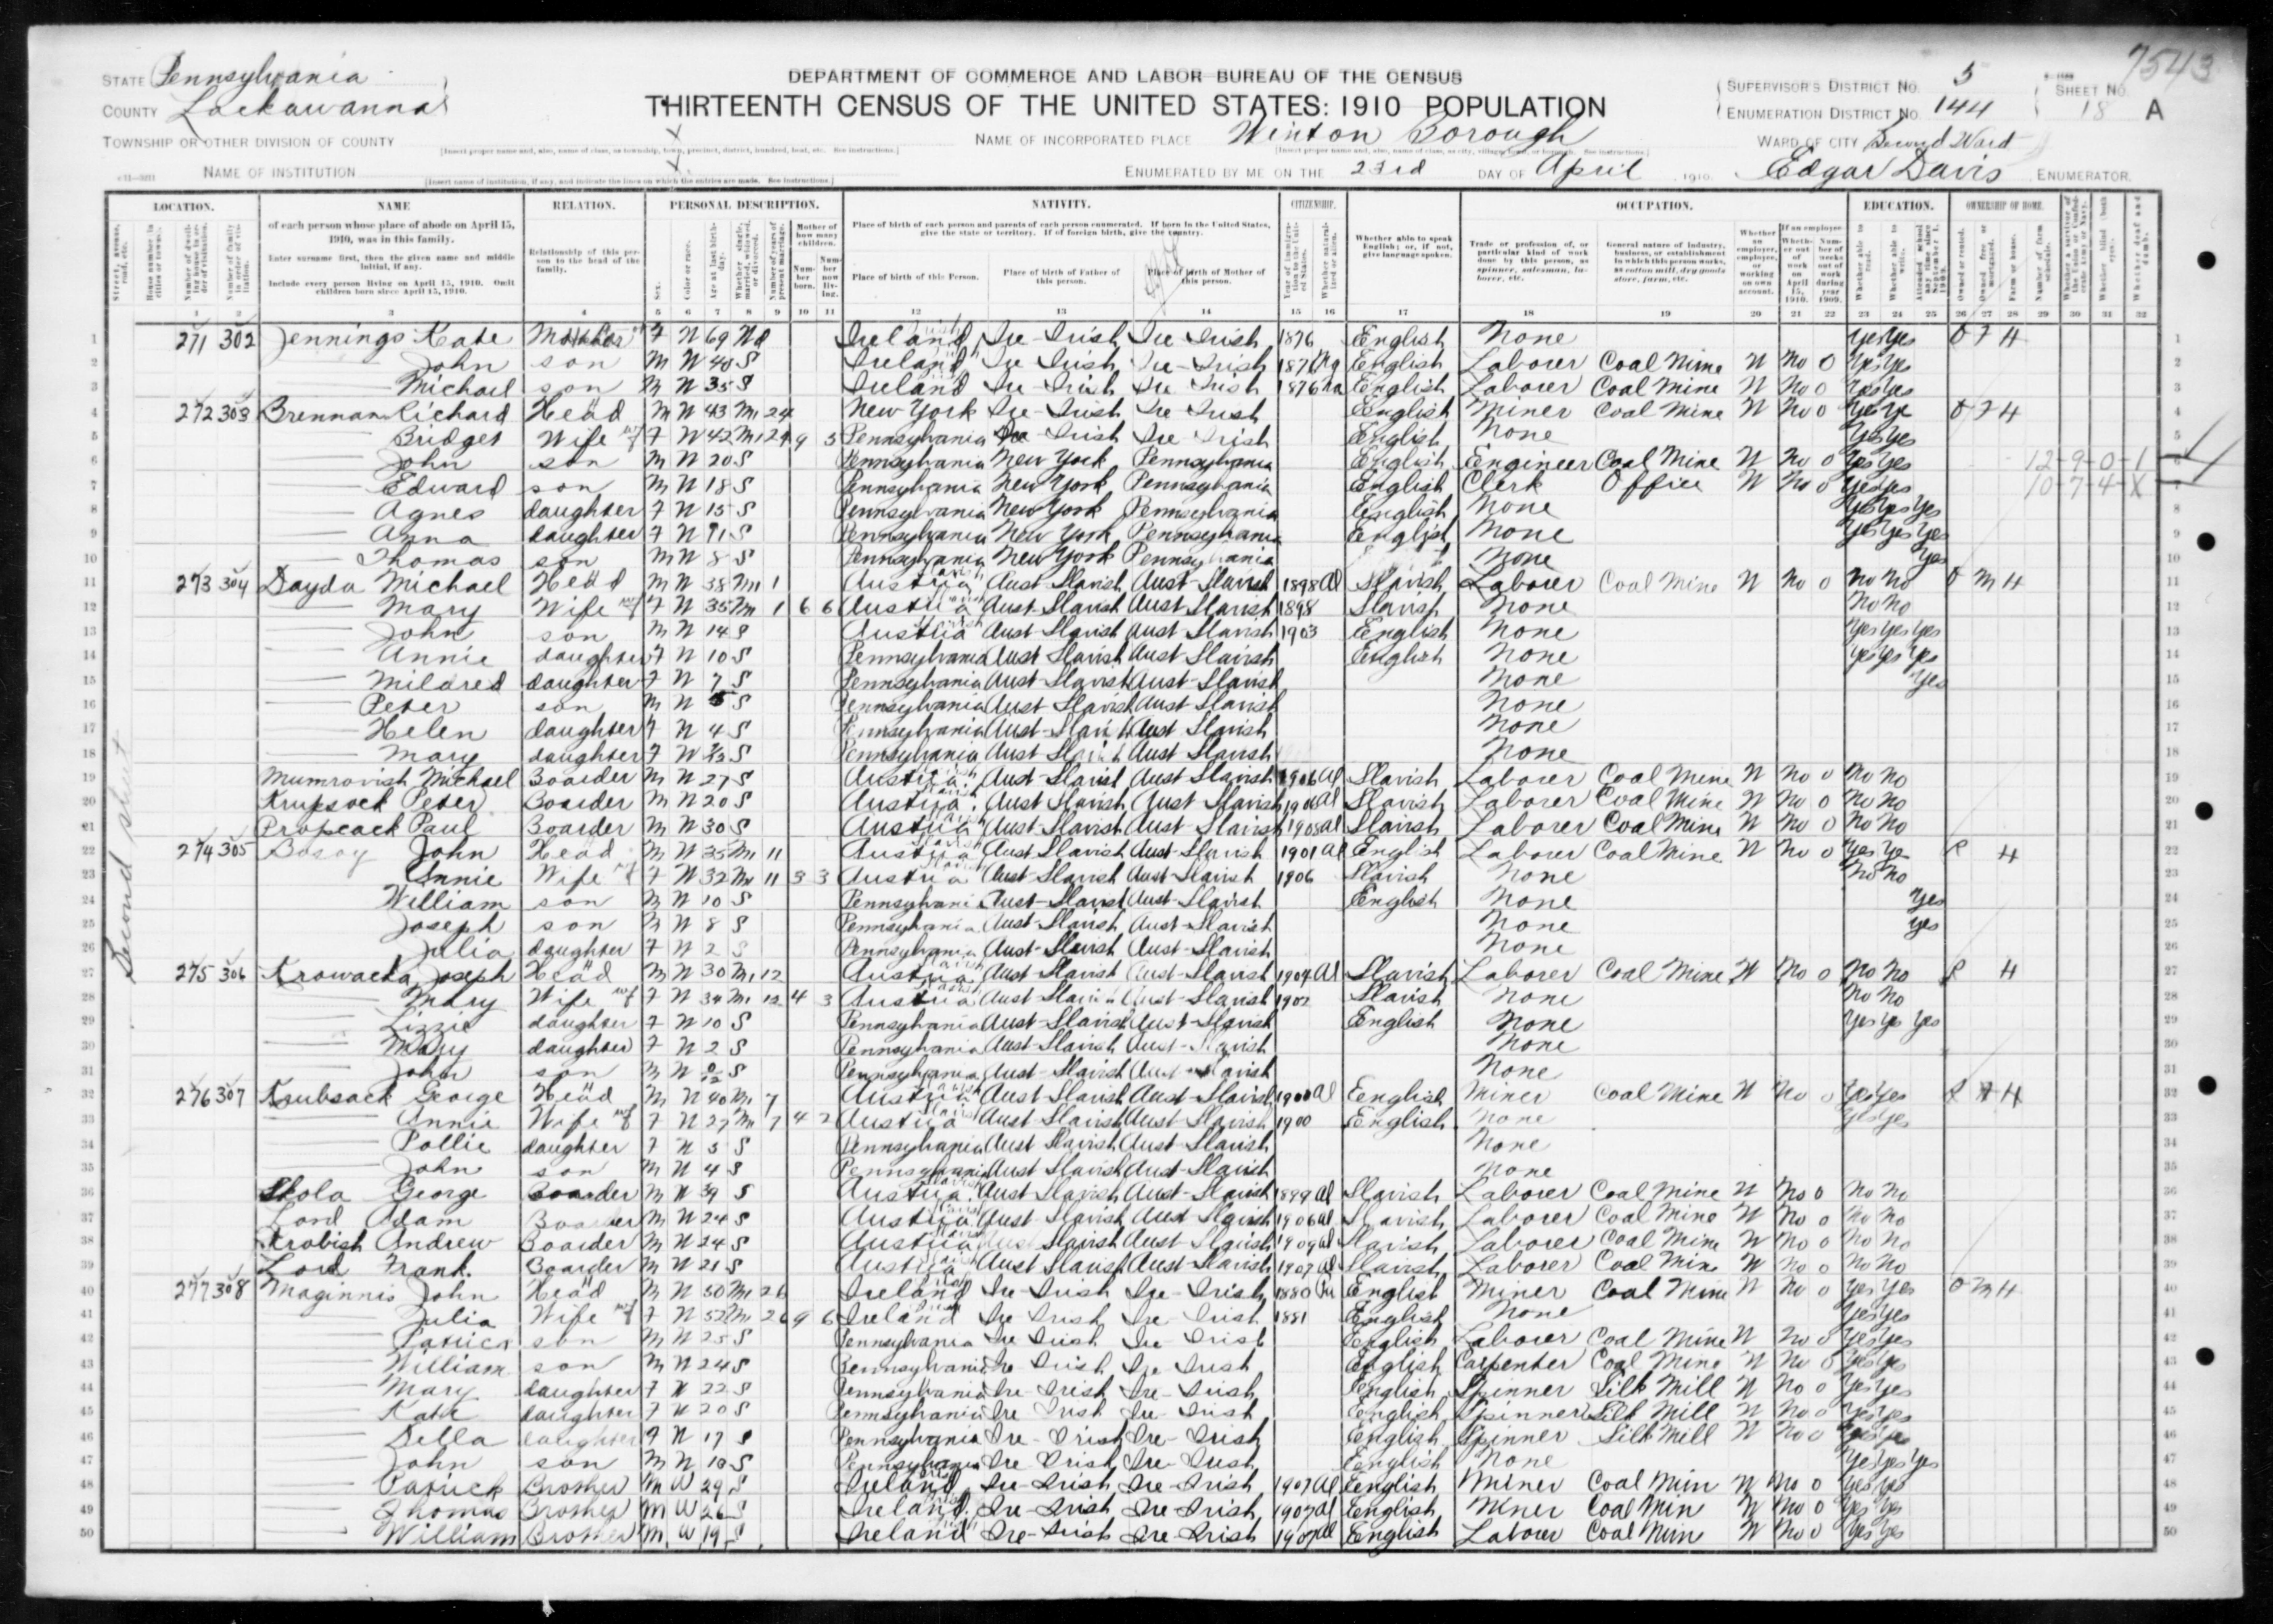 7543
STATE Pennsylvania
COUNTY Lackawanna
TOWNSHIP OR OTHER DIVISION OF COUNTY
NAME OF INSTITUTION
DEPARTMENT OF COMMERCE AND LABOR-BUREAU OF THE CENSUS
THIRTEENTH CENSUS OF THE UNITED STATES: 1910 POPULATION
NAME OF INCORPORATED PLACE Winton Borough
ENUMERATED BY ME ON THE 23rd DAY OF April, 1910. Edgar Davis, ENUMERATOR.
SUPERVISOR'S DISTRICT NO. 5
ENUMERATION DISTRICT NO. 144
SHEET NO. 18 A
WARD OF CITY Second Ward
LOCATION. NAME RELATION. PERSONAL DESCRIPTION. NATIVITY. CITIZENSHIP. OCCUPATION. EDUCATION. OWNERSHIP OF HOME.
of each person whose place of abode on April 15, 1910, was in this family.
Enter surname first, then the given name and middle initial, if any.
Include every person living on April 15, 1910. Omit children born since April 15, 1910.
Relationship of this person to the head of the family.
Place of birth of each person and parents of each person enumerated. If born in the United States, give the state or territory. If of foreign birth, give the country.
Place of birth of this Person. Place of birth of Father of this person. Place of birth of Mother of this person.
Whether able to speak English; or, if not, give language spoken.
Trade or profession of, or particular kind of work done by this person, as spinner, salesman, laborer, etc.
General nature of industry, business, or establishment in which this person works, as cotton mill, dry goods store, farm, etc.
1 2 3 4 5 6 7 8 9 10 11 12 13 14 15 16 17 18 19 20 21 22 23 24 25 26 27 28 29 30 31 32
1 271 302 Jennings Kate Mother F W 69 Wd Ireland Ire-Irish Ire Irish 1876 English None Yes Yes O F H 1
2 John son M W 40 S Ireland Ire Irish Ire-Irish 1876 Na English Laborer Coal Mine W No 0 Yes Yes 2
3 Michael son M W 35 S Ireland Ire Irish Ire Irish 1876 Na English Laborer Coal Mine W No 0 Yes Yes 3
4 272 303 Brennan Richard Head M W 43 M1 24 New York Ire-Irish Ire Irish English Miner Coal Mine W No 0 Yes Ye O F H 4
5 Bridget Wife F W 42 M1 24 9 5 Pennsylvania Ire-Irish Ire Irish English None Yes Yes 5
6 John son M W 20 S Pennsylvania New York Pennsylvania English Engineer Coal Mine W No 0 Yes Yes 12-9-0-1 6
7 Edward son M W 18 S Pennsylvania New York Pennsylvania English Clerk Office W No 0 Yes Yes 10-7-4-X 7
8 Agnes daughter F W 15 S Pennsylvania New York Pennsylvania English None Yes Yes Yes 8
9 Anna daughter F W 11 S Pennsylvania New York Pennsylvania English None Yes Yes Yes 9
10 Thomas son M W 8 S Pennsylvania New York Pennsylvania None Yes 10
11 273 304 Dayda Michael Head M W 38 M1 1 Austria Aust Slavish Aust-Slavish 1898 Al Slavish Laborer Coal Mine W No 0 No No O M H 11
12 Mary Wife F W 35 M 1 6 6 Austria Aust Slavish Aust Slavish 1898 Slavish None No No 12
13 John son M W 14 S Austria Aust Slavish Aust Slavish 1903 English None Yes Yes Yes 13
14 Annie daughter F W 10 S Pennsylvania Aust Slavish Aust Slavish English None Yes Yes Yes 14
15 Mildred daughter F W 7 S Pennsylvania Aust-Slavish Aust-Slavish None Yes 15
16 Peter son M W 5 S Pennsylvania Aust Slavish Aust Slavish None 16
17 Helen daughter F W 4 S Pennsylvania Aust-Slavish Aust Slavish None 17
18 Mary daughter F W S Pennsylvania Aust Slavish Aust Slavish None 18
19 Mumrovish Michael Boarder M W 27 S Austria Aust-Slavish Aust Slavish 1906 Al Slavish Laborer Coal Mine W No 0 No No 19
20 Krupsock Peter Boarder M W 20 S Austria Aust Slavish Aust Slavish Al Slavish Laborer Coal Mine W No 0 No No 20
21 Propcack Paul Boarder M W 30 S Austria Aust-Slavish Aust-Slavish 1905 Al Slavish Laborer Coal Mine W No 0 No No 21
22 274 305 Bosoy John Head M W 35 M1 11 Austria Aust Slavish Aust-Slavish 1901 Al English Laborer Coal Mine W No 0 Yes Ye R H 22
23 Annie Wife F W 32 M 11 3 3 Austria Aust-Slavish Aust-Slavish 1906 Slavish None No No 23
24 William son M W 10 S Pennsylvania Aust-Slavish Aust-Slavish English None Yes 24
25 Joseph son M W 8 S Pennsylvania Aust-Slavish Aust-Slavish None Yes 25
26 Julia daughter F W 2 S Pennsylvania Aust-Slavish Aust-Slavish None 26
27 275 306 Krowacka Joseph Head M W 30 M1 12 Austria Aust-Slavish Aust-Slavish 1904 Al Slavish Laborer Coal Mine W No 0 No No R H 27
28 Mary Wife F W 34 M1 12 4 3 Austria Aust-Slavish Aust-Slavish 1902 Slavish None No No 28
29 Lizzie daughter F W 10 S Pennsylvania Aust-Slavish Aust-Slavish English None Yes Ye Yes 29
30 Mary daughter F W 2 S Pennsylvania Aust-Slavish Aust-Slavish None 30
31 John son M W S Pennsylvania Aust-Slavish Aust Slavish None 31
32 276 307 Krubsack George Head M W 40 M1 7 Austria Aust Slavish Aust-Slavish 1900 Al English Miner Coal Mine W No 0 Yes Yes R H 32
33 Annie Wife F W 27 M1 7 4 2 Austria Aust-Slavish Aust Slavish 1900 English None Yes Yes 33
34 Pollie daughter F W 5 S Pennsylvania Aust Slavish Aust-Slavish None 34
35 John son M W 4 S Pennsylvania Aust Slavish Aust-Slavish None 35
36 Skola George Boarder M W 39 S Austria Aust Slavish Aust-Slavish 1899 Al Slavish Laborer Coal Mine W No 0 No No 36
37 Lord Adam Boarder M W 24 S Austria Aust-Slavish Aust Slavish 1906 Al Slavish Laborer Coal Mine W No 0 No No 37
38 Krobish Andrew Boarder M W 24 S Austria Aust Slavish Aust Slavish 1909 Al Slavish Laborer Coal Mine W No 0 No No 38
39 Lord Frank Boarder M W 21 S Austria Aust Slavish Aust-Slavish 1907 Al Slavish Laborer Coal Mine W No 0 No No 39
40 277 308 Maginnis John Head M W 50 M1 26 Ireland Ire-Irish Ire-Irish 1880 English Miner Coal Mine W No 0 Yes Yes O M H 40
41 Julia Wife F W 52 M1 26 9 6 Ireland Ire Irish Ire Irish 1881 English None Yes Yes 41
42 Patrick son M W 25 S Pennsylvania Ire Irish Ire-Irish English Laborer Coal Mine W No 0 Yes Yes 42
43 William son M W 24 S Pennsylvania Ire Irish Ire-Irish English Carpenter Coal Mine W No 0 Yes Yes 43
44 Mary daughter F W 22 S Pennsylvania Ire-Irish Ire-Irish English Spinner Silk Mill W No 0 Yes Yes 44
45 Kate daughter F W 20 S Pennsylvania Ire Irish Ire-Irish English Spinner Silk Mill W No 0 Yes Yes 45
46 Della daughter F W 17 S Pennsylvania Ire-Irish Ire-Irish English Spinner Silk Mill W No 0 Yes Yes 46
47 John son M W 10 S Pennsylvania Ire Irish Ire-Irish English None Yes Yes Yes 47
48 Patrick Brother M W 29 S Ireland Ire-Irish Ire-Irish 1907 Al English Miner Coal Min W No 0 Yes Yes 48
49 Thomas Brother M W 26 S Ireland Ire-Irish Ire-Irish 1907 Al English Miner Coal Min W No 0 Yes Yes 49
50 William Brother M W 19 S Ireland Ire-Irish Ire Irish 1907 Al English Laborer Coal Min W No 0 Yes Yes 50
Second street